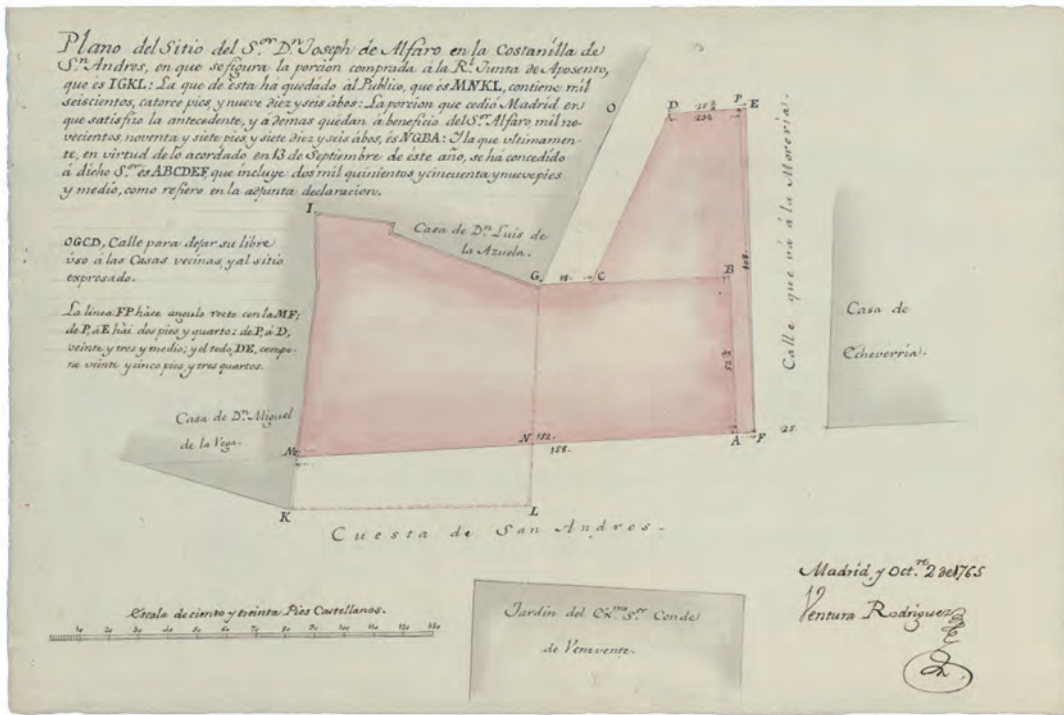 Plano del Sitio del S.ᵒʳ D.ⁿ Joseph de Alfaro en la Costanilla de
S.ⁿ Andres, en que se figura la porcion comprada á la R.ˡ Junta de Aposento,
que es IGKL: La que de ésta há quedádo ál Público, que és MNKL, contiene mil
seiscientos, catorce pies, y nueve diez y seis ábos: La porcion que cedió Madrid en
que satisfizo la antecedente, y ademas quedan á beneficio del S.ᵒʳ Alfaro, mil no-
vecientos, noventa y siete pies y siete diez y seis ábos, és NGBA: I la que ultimamen-
te, en virtud de lo acordado en 13 de Septiembre de éste año, se há concedido
á dicho S.ᵒʳ és ABCDEF, que incluye dos mil quinientos y cincuenta y nueve pies
y medio, como refiero en la adjunta declaracion.
OGCD, Calle para dejar su libre
úso á las Casas vecinas, y al sitio
expresado.
La linea FP háce angulo recto con la MF;
de P, á E hái dos pies y quarto: de P, á D,
veinte y tres y medio; y el todo, DE, compo-
ne veinte y cinco pies y tres quartos.
I
Casa de D.ⁿ Luis de
la Azuela.
O
D
25 ¾
23 ½
P
E
G
18.
C
B
108.
52 ½
Calle que vá á la Morería.
Casa de
Echeverría.
Casa de D.ⁿ Miguel
de la Vega.
M
N
152.
158.
A
F
25.
K
L
Cuesta de San Andres.
Madrid, y Oct.ʳᵉ 2 de 1765
Ventura Rodriguez
Escala de ciento y treinta Pies Castellanos.
10 20 30 40 50 60 70 80 90 100 110 120 130
Jardin del Ex.ᵐᵒ S.ᵒʳ Conde
de Venavente.